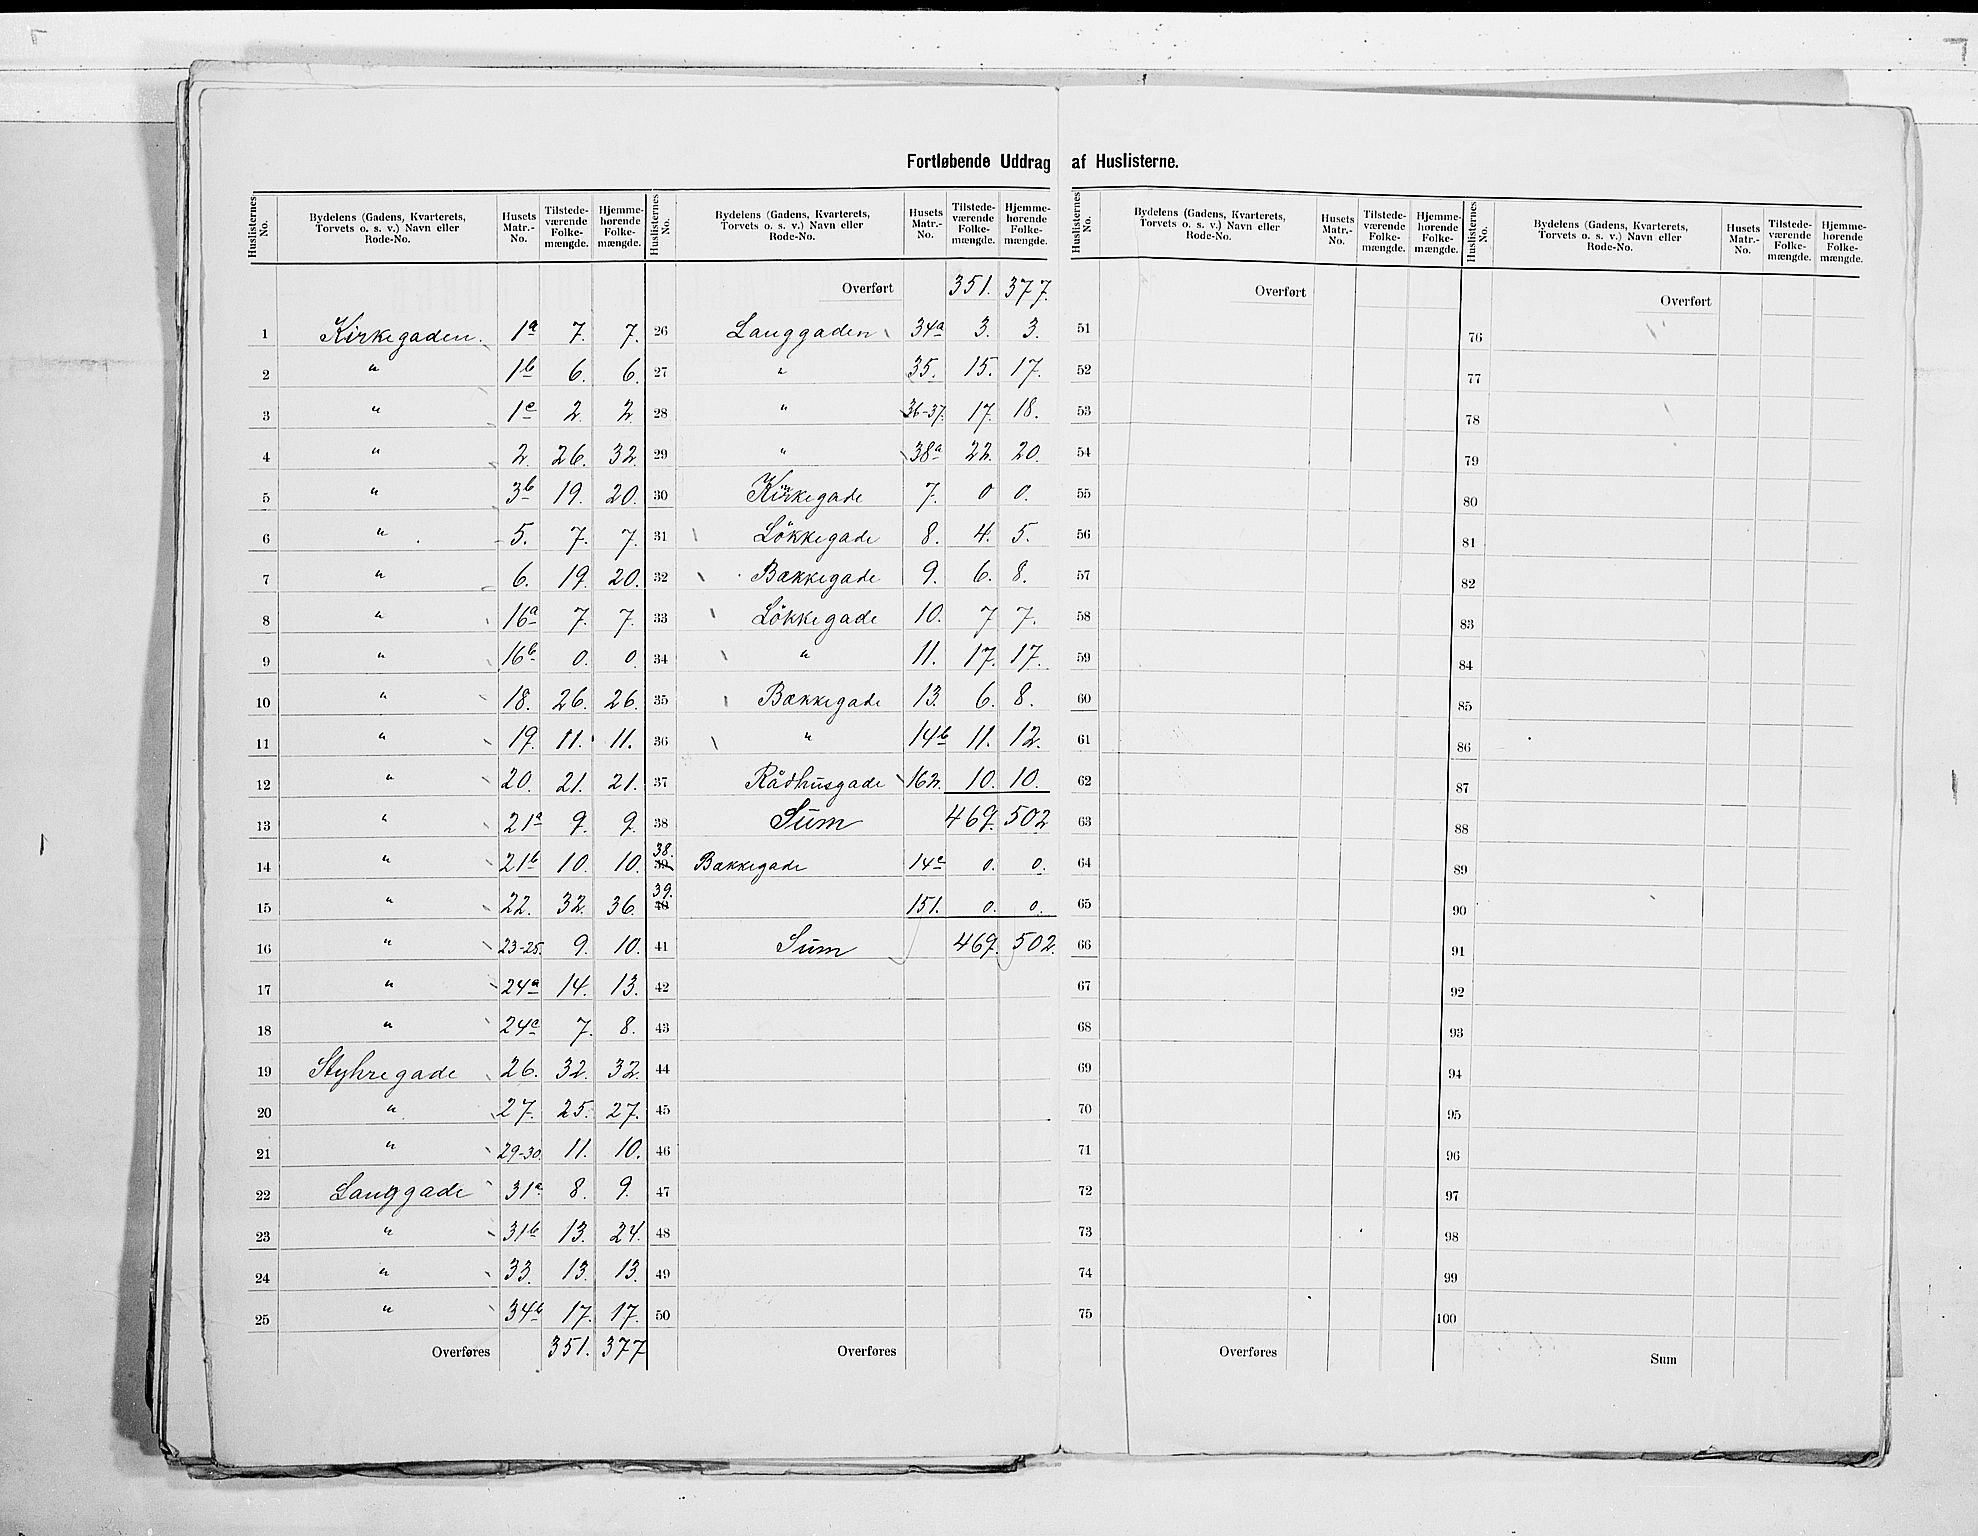 Fortløbende Uddrag af Huslisterne.
Huslisternes No. | Bydelens (Gadens, Kvarterets, Torvets o. s. v.) Navn eller Rode-No. | Husets Matr.-No. | Tilstedeværende Folkemængde. | Hjemmehørende Folkemængde.
1 Kirkegaden. 1a 7. 7.
2 " 1b 6. 6.
3 " 1c 2. 2.
4 " 2. 26. 32.
5 " 3b 19. 20.
6 " 5. 7. 7.
7 " 6. 19. 20.
8 " 16a 7. 7.
9 " 16b 0. 0.
10 " 18. 26. 26.
11 " 19. 11. 11.
12 " 20. 21. 21.
13 " 21a 9. 9.
14 " 21b 10. 10.
15 " 22. 32. 36.
16 " 23-25. 9. 10.
17 " 24a 14. 13.
18 " 24c 7. 8.
19 Styhregade 26. 32. 32.
20 " 27. 25. 27.
21 " 29-30. 11. 10.
22 Langgade 31a 8. 9.
23 " 31b 13. 24.
24 " 33. 13. 13.
25 " 34b 17. 17.
Overføres 351. 377
Huslisternes No. | Bydelens (Gadens, Kvarterets, Torvets o. s. v.) Navn eller Rode-No. | Husets Matr.-No. | Tilstedeværende Folkemængde. | Hjemmehørende Folkemængde.
Overført 351. 377.
26 Langgaden 34a 3. 3.
27 " 35. 15. 17.
28 " 36-37. 17. 18.
29 " 38a 22. 20.
30 Kirkegade 7. 0 0.
31 Løkkegade 8. 4. 5.
32 Bækkegade 9. 6. 8.
33 Løkkegade 10. 7 7.
34 " 11. 17. 17.
35 Bækkegade 13. 6. 8.
36 " 14b 11. 12.
37 Rådhusgade 162. 10. 10.
38 Sum 469. 502
38. 39 Bækkegade 14c 0. 0.
39. 40 151. 0. 0.
41 Sum 469. 502.
42
43
44
45
46
47
48
49
50
Overføres
Huslisternes No. | Bydelens (Gadens, Kvarterets, Torvets o. s. v.) Navn eller Rode-No. | Husets Matr.-No. | Tilstedeværende Folkemængde. | Hjemmehørende Folkemængde.
Overført
51
52
53
54
55
56
57
58
59
60
61
62
63
64
65
66
67
68
69
70
71
72
73
74
75
Overføres
Huslisternes No. | Bydelens (Gadens, Kvarterets, Torvets o. s. v.) Navn eller Rode-No. | Husets Matr.-No. | Tilstedeværende Folkemængde. | Hjemmehørende Folkemængde.
Overført
76
77
78
79
80
81
82
83
84
85
86
87
88
89
90
91
92
93
94
95
96
97
98
99
100
Sum